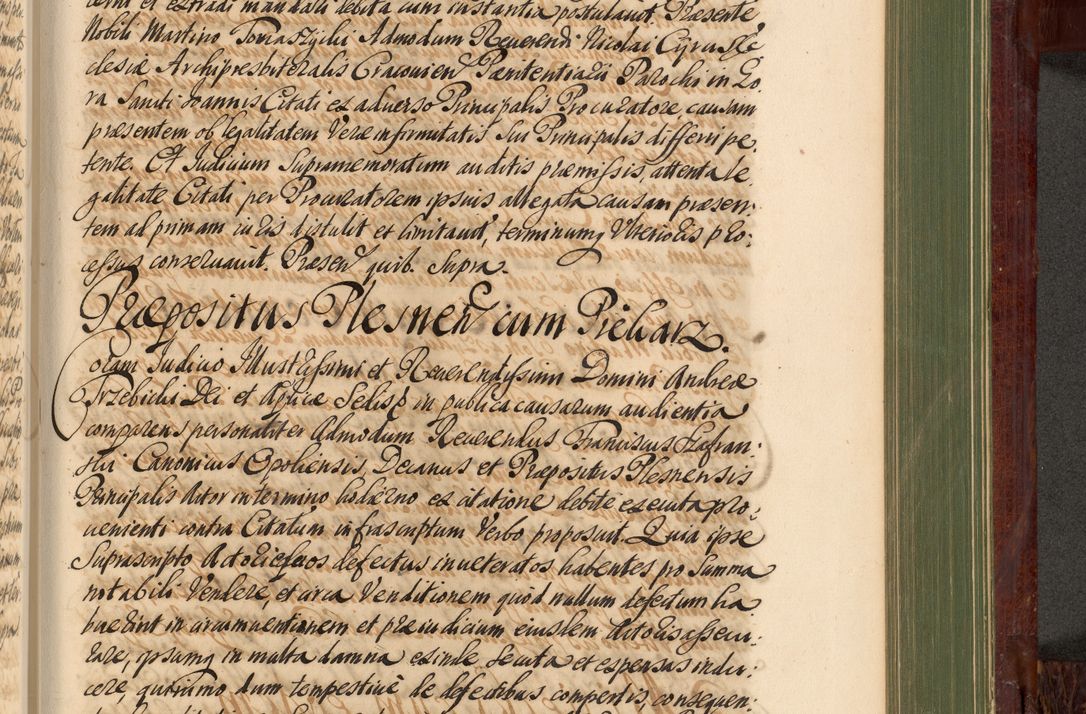 cerni et extradi mandari debita cum instantia postulavit. Præsente
Nobili Martino Tomaszycki Admodum Reverendi Nicolai Cyrus Ec
clesiæ Archipresbiteralis Cracovien Pœnitentiarii Parochi in Go
ra Sancti Joannis Citati ex adverso Principalis Procuratore, causam
præsentem ob legalitatem Veræ infirmitatis sui Principalis differri pe,
tente. Et Judicium Supramemoratum auditis præmissis, attenta le,
galitate Citati per Procuratorem ipsius allegata causam præsen,
tem ad primam iuris distulit et limitavit, terminumq Ulterioris pro,
cessus conservavit. Præsen quib. supra.
Præpositus Plesnen cum Piekarz.
Coram Judicio Illustrissimi et Reverendissimi Domini Andreæ
Trzebicki Dei et Apticæ Sedis p in publica causarum audientia
comparens personaliter Admodum Reverendus Franciscus Stefran,
ski Canonicus Opoliensis, Decanus et Præpositus Plesnensis
Principalis Actor in termino hodierno ex citatione debite executa pro,
venienti contra Citatum infrascriptum Verbo proposuit. Quia ipse
Suprascripto Actori equos defectus inveteratos habentes pro Summa
notabili Vendere, et circa Venditionem quod nullum defectum ha
buerint in circumventionem et præiudicium eiusdem Actoris assecu,
rare, ipsumq in multa damna exinde secuta et expensas indu,
cere, quinimo dum tempestive de defectibus compertis, consequen,